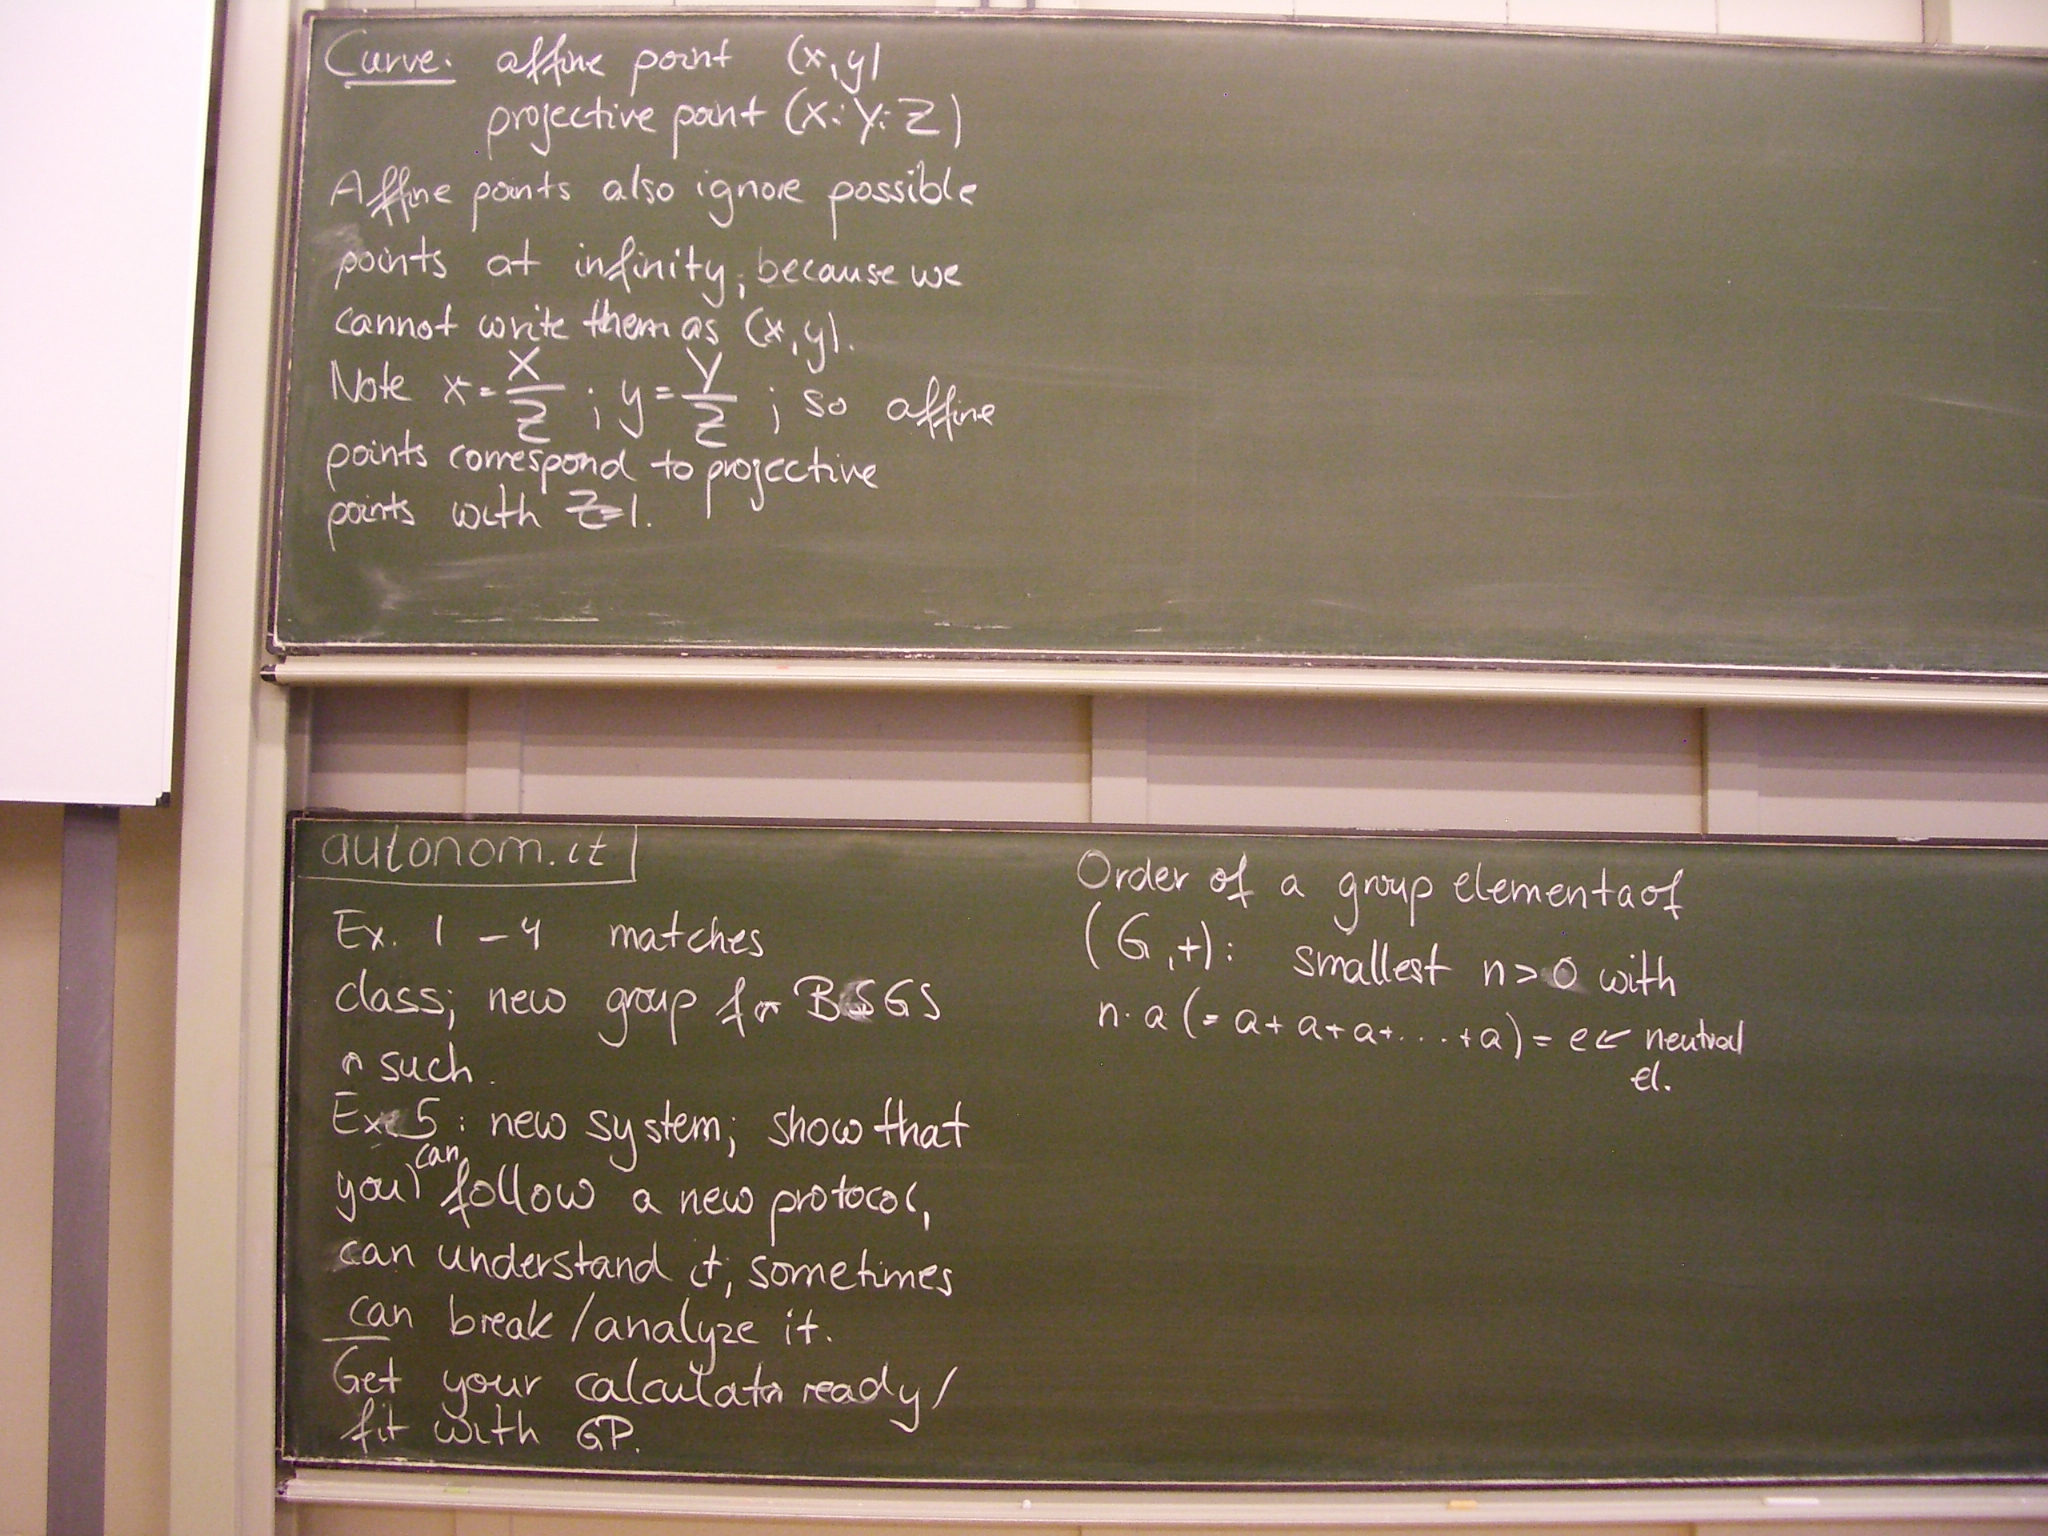 Curve: affine point (x,y)
projective point (X:Y:Z)
Affine points also ignore possible
points at infinity, because we
cannot write them as (x,y).
Note x = X/Z ; y = Y/Z ; so affine
points correspond to projective
points with Z=1.
autonom.it
Ex. 1 – 4 matches
class; new group for BSGS
or such.
Ex 5: new system; show that
you can follow a new protocol,
can understand it, sometimes
can break/analyze it.
Get your calculator ready/
fit with GP.
Order of a group element a of
(G,+): smallest n>0 with
n·a (= a+a+a+...+a) = e ← neutral
el.